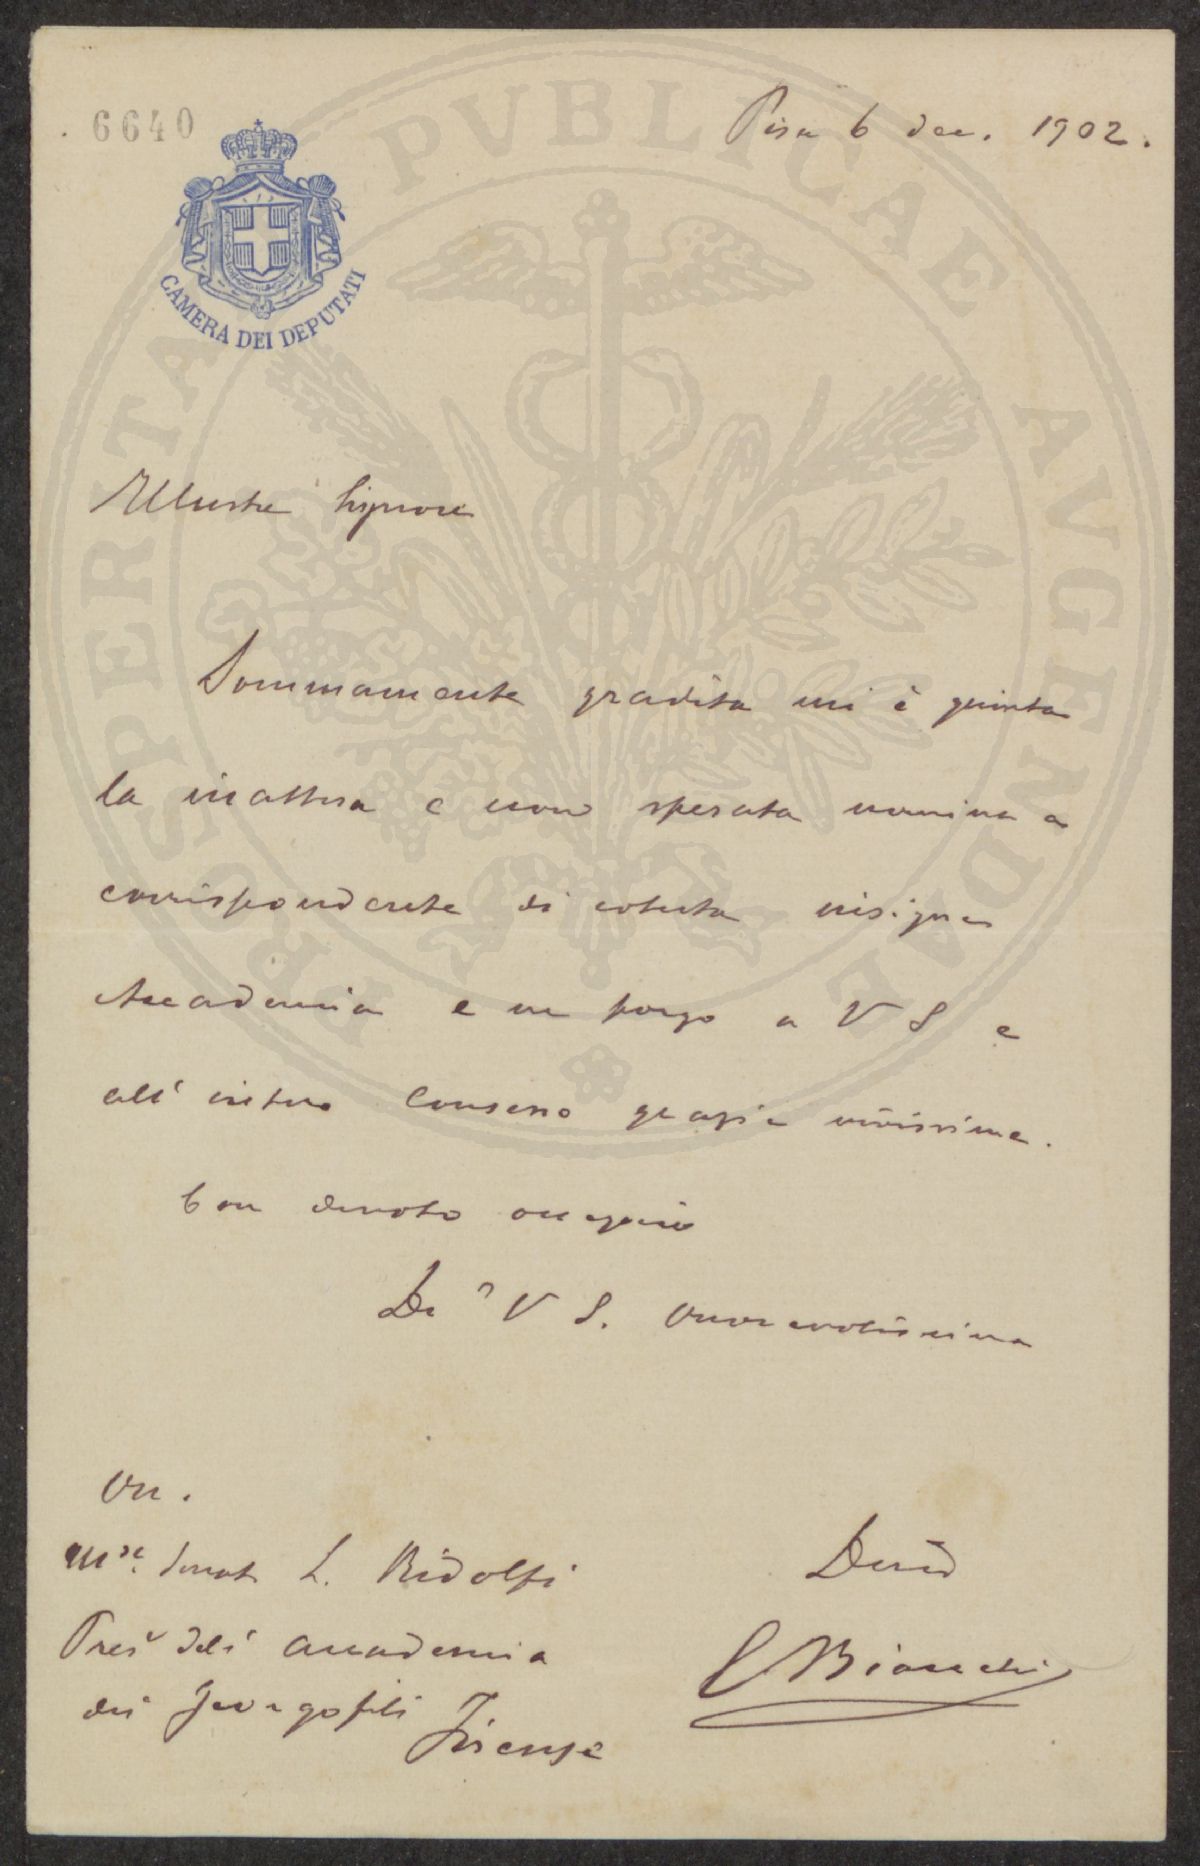 6640
Pisa 6 dec. 1902.
CAMERA DEI DEPUTATI
PROSPERITATI PVBLICAE AVGENDAE
Illustre Signore
Sommamente gradita mi è giunta
la inattesa e non sperata nomina a
corrispondente di cotesta insigne
Accademia e ne porgo a V S e
all' intero Consesso grazie vivissime.
Con devoto ossequio
Di V S. Onorevolissima
On.
Mse. Senat. L. Ridolfi
Pres dell' Accademia
dei Georgofili
Firenze
Dev
E Bianchi